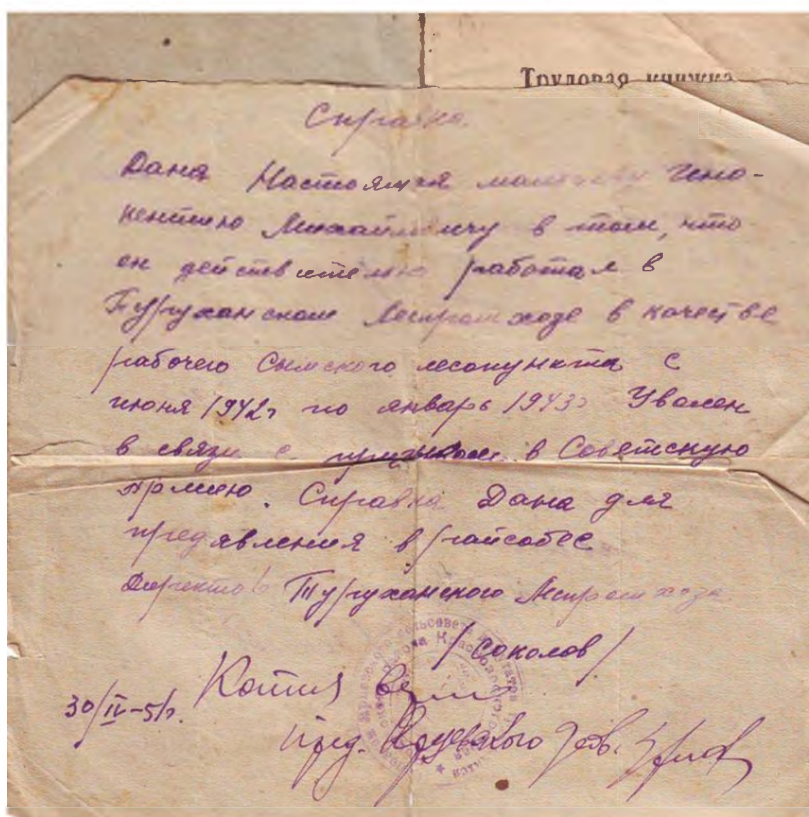 Трудовая книжка
Справка.
Дана Настоящая Ино-
кентию Михайловичу в том, что
он действительно работал в
Туруханском Леспромхозе в качестве
рабочего Сымского лесопункта с
июня 1942г по январь 1943г Уволен
в связи с призывом в Советскую
Армию. Справка Дана для
предявления в райсобес
Директор Туруханского Леспромхоза
/Соколов/
Копия верна
30/IV-51г.
пред.